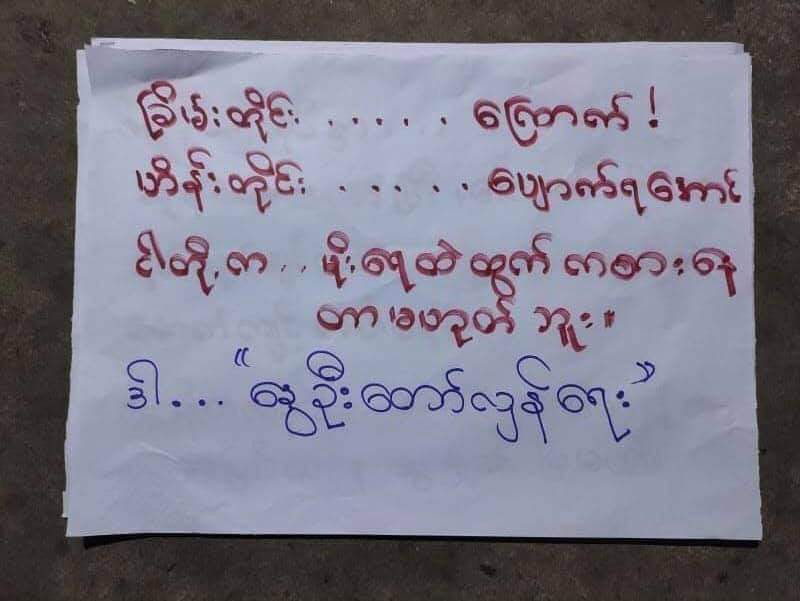 ခြိမ်းတိုင်း . . . . . . ကြောက်!
ဟိန်းတိုင်း . . . . . . ပျောက်ရအောင်
ငါတို့က . . မိုးရေထဲ ထွက် ကစားနေ
တာ မဟုတ် ဘူး။
ဒါ ... "နွေဦးတော်လှန်ရေး"